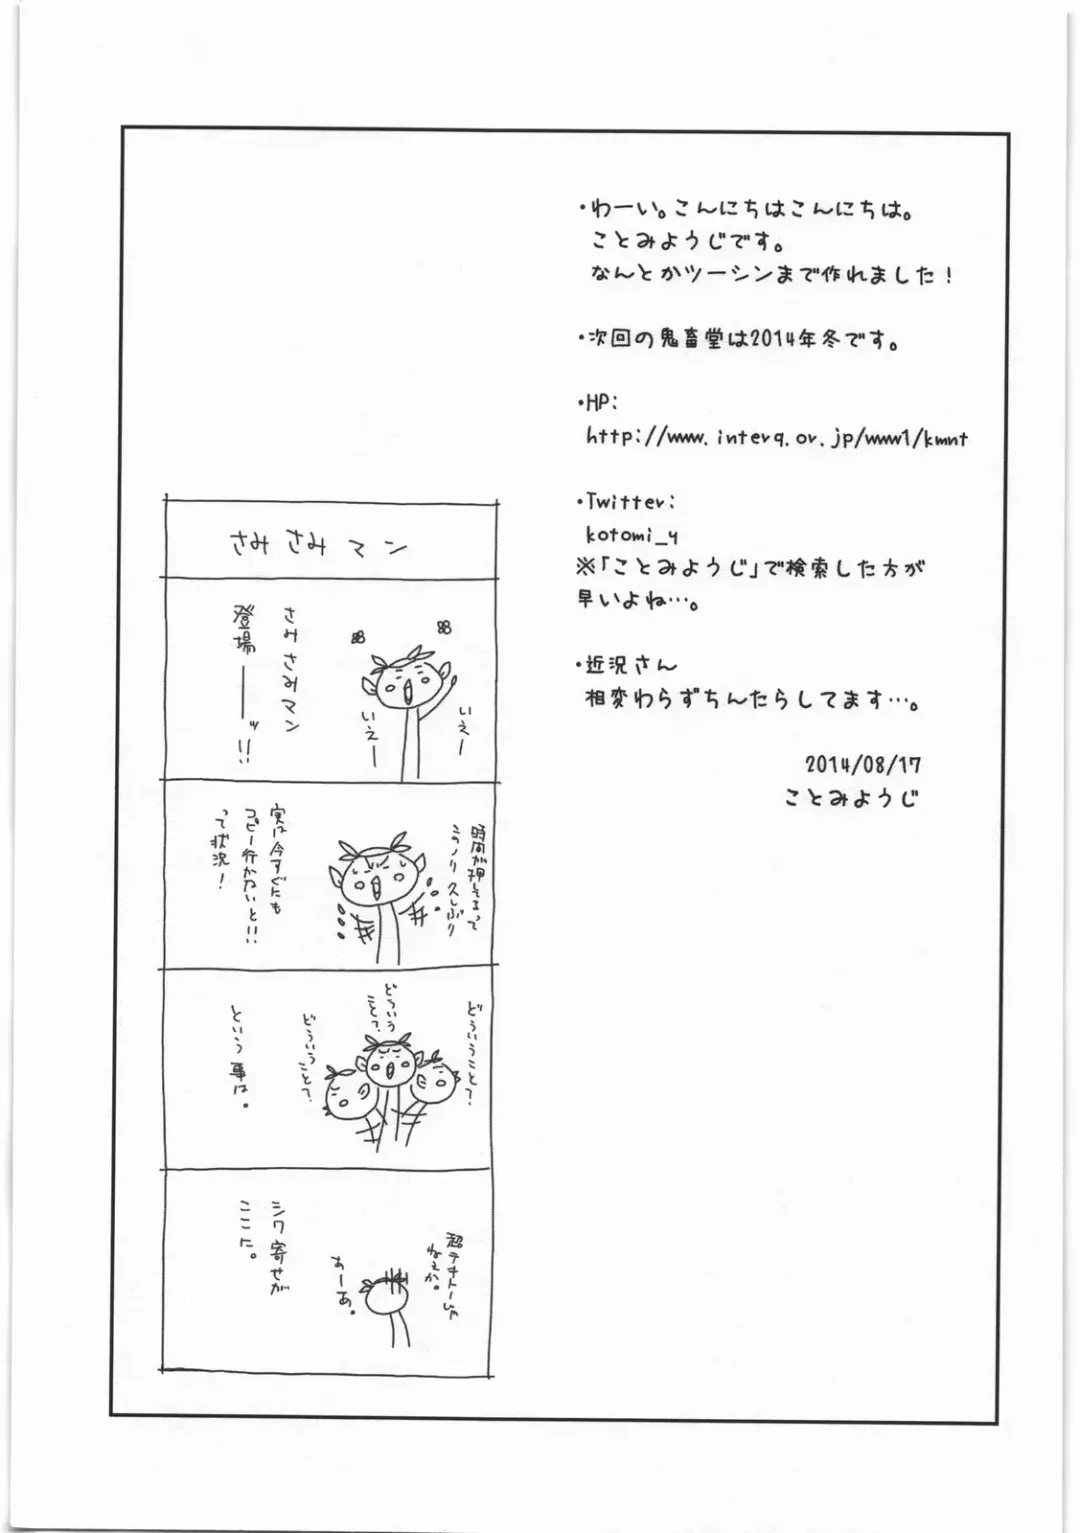 ・わーい。こんにちはこんにちは。
ことみようじです。
なんとかツーシンまで作れました！
・次回の鬼畜堂は2014年冬です。
・HP:
http://www.interq.or.jp/www1/kmnt
・Twitter:
kotomi_y
※「ことみようじ」で検索した方が
早いよね…。
・近況さん
相変わらずちんたらしてます…。
2014/08/17
ことみようじ
さみさみマン
さみさみマン
登場――ッ!!
いえー
いえー
時間が押してるって
このノリ久しぶり
実は今すぐにも
コピー行かないと!!
って状況！
どういうことて?
どういう
ことて?
どういうことて?
という事は。
超テキトーじゃ
ねぇか。
あーあ。
シワ寄せが
ここに。